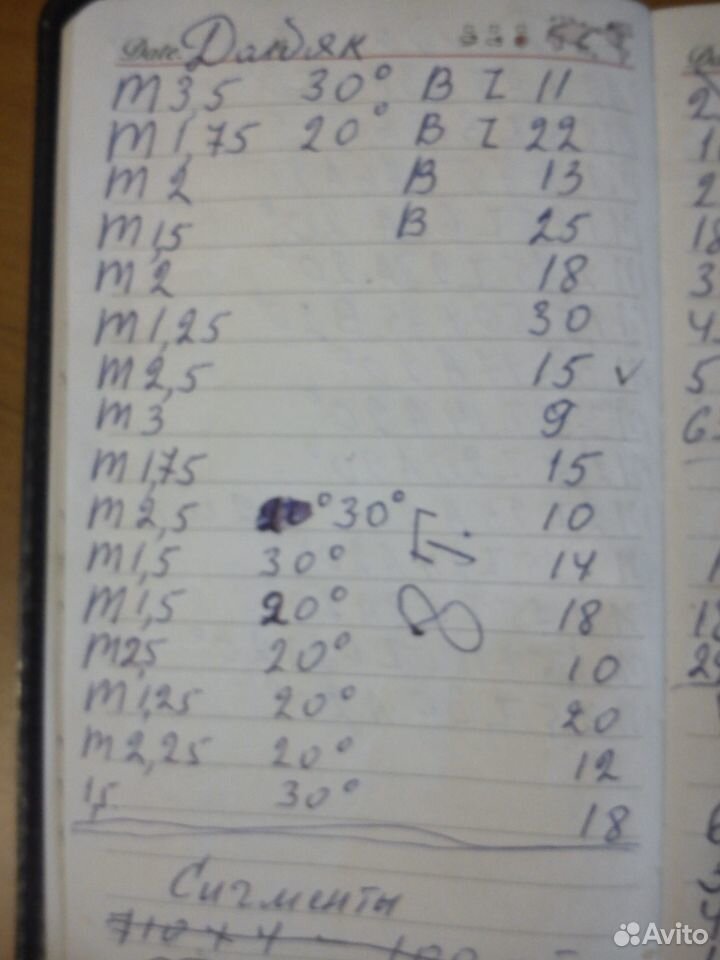 Date. Долбяк
m 3,5 30° В Z 11
m 1,75 20° В Z 22
m 2 В 13
m 1,5 В 25
m 2 18
m 1,25 30
m 2,5 15 ✓
m 3 9
m 1,75 15
m 2,5 30° 10
m 1,5 30° 14
m 1,5 20° 18
m 2,5 20° 10
m 1,25 20° 20
m 2,25 20° 12
1,5 30° 18
Сигменты
710 x 4 - 100
Avito